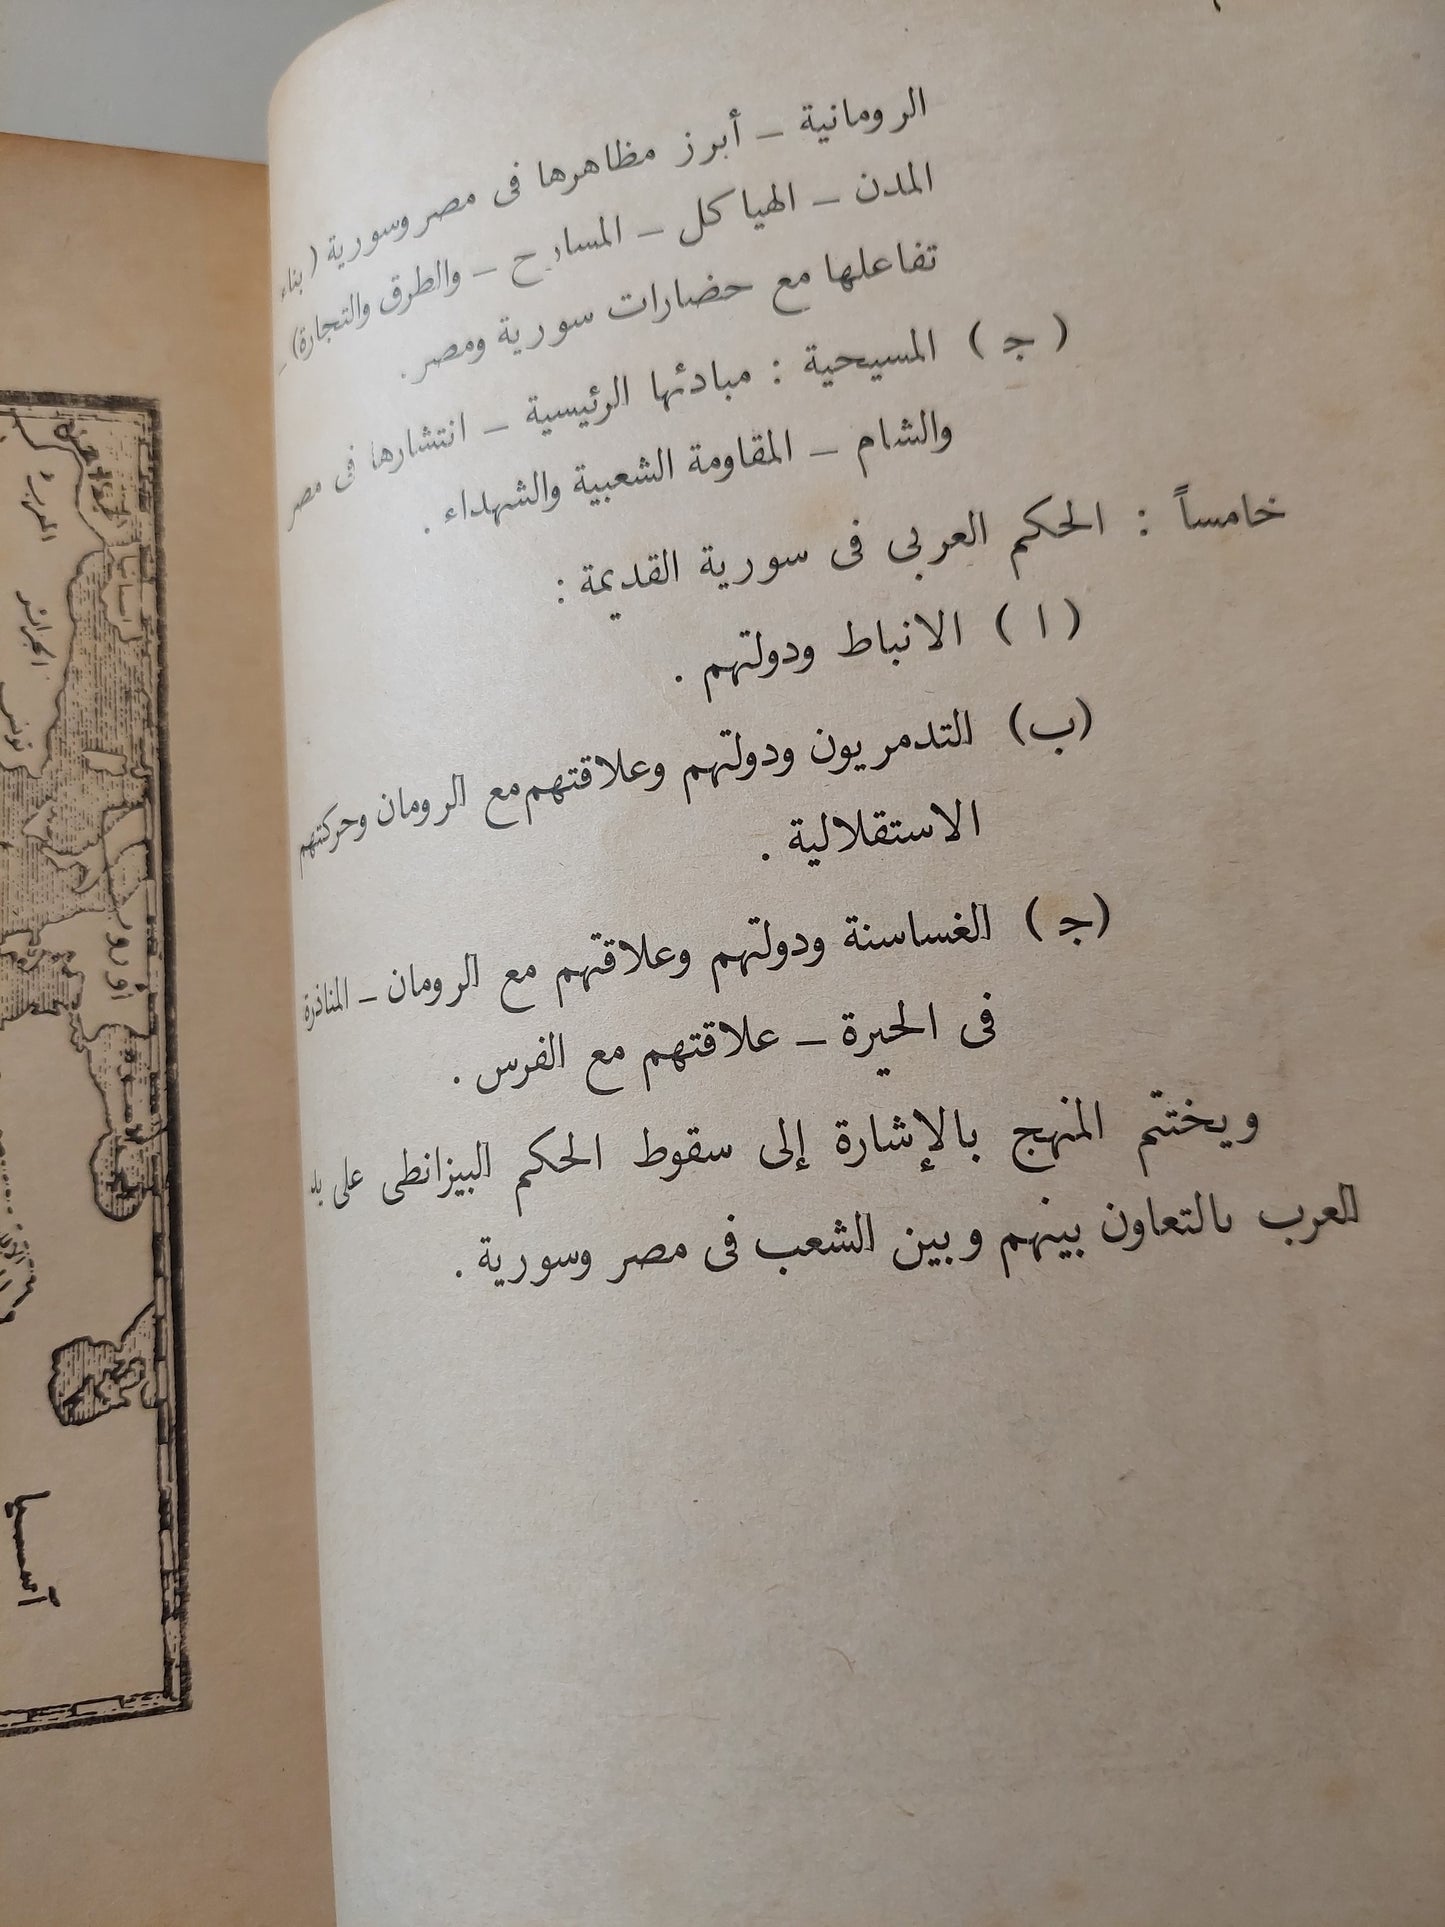 الرومانية – أبرز مظاهرها فى مصر وسورية ( بناء
المدن – الهياكل – المسارح – والطرق والتجارة) –
تفاعلها مع حضارات سورية ومصر .
( ج ) المسيحية : مبادئها الرئيسية – انتشارها فى مصر
والشام – المقاومة الشعبية والشهداء .
خامساً : الحكم العربى فى سورية القديمة :
( ا ) الانباط ودولتهم .
(ب) التدمريون ودولتهم وعلاقتهم مع الرومان وحركتهم
الاستقلالية .
(ج) الغساسنة ودولتهم وعلاقتهم مع الرومان – المناذرة
فى الحيرة – علاقتهم مع الفرس .
ويختتم المنهج بالإشارة إلى سقوط الحكم البيزانطى على يد
العرب بالتعاون بينهم وبين الشعب فى مصر وسورية .
الجزائر
تونس
اسبانيا
أوروبا
آسيا